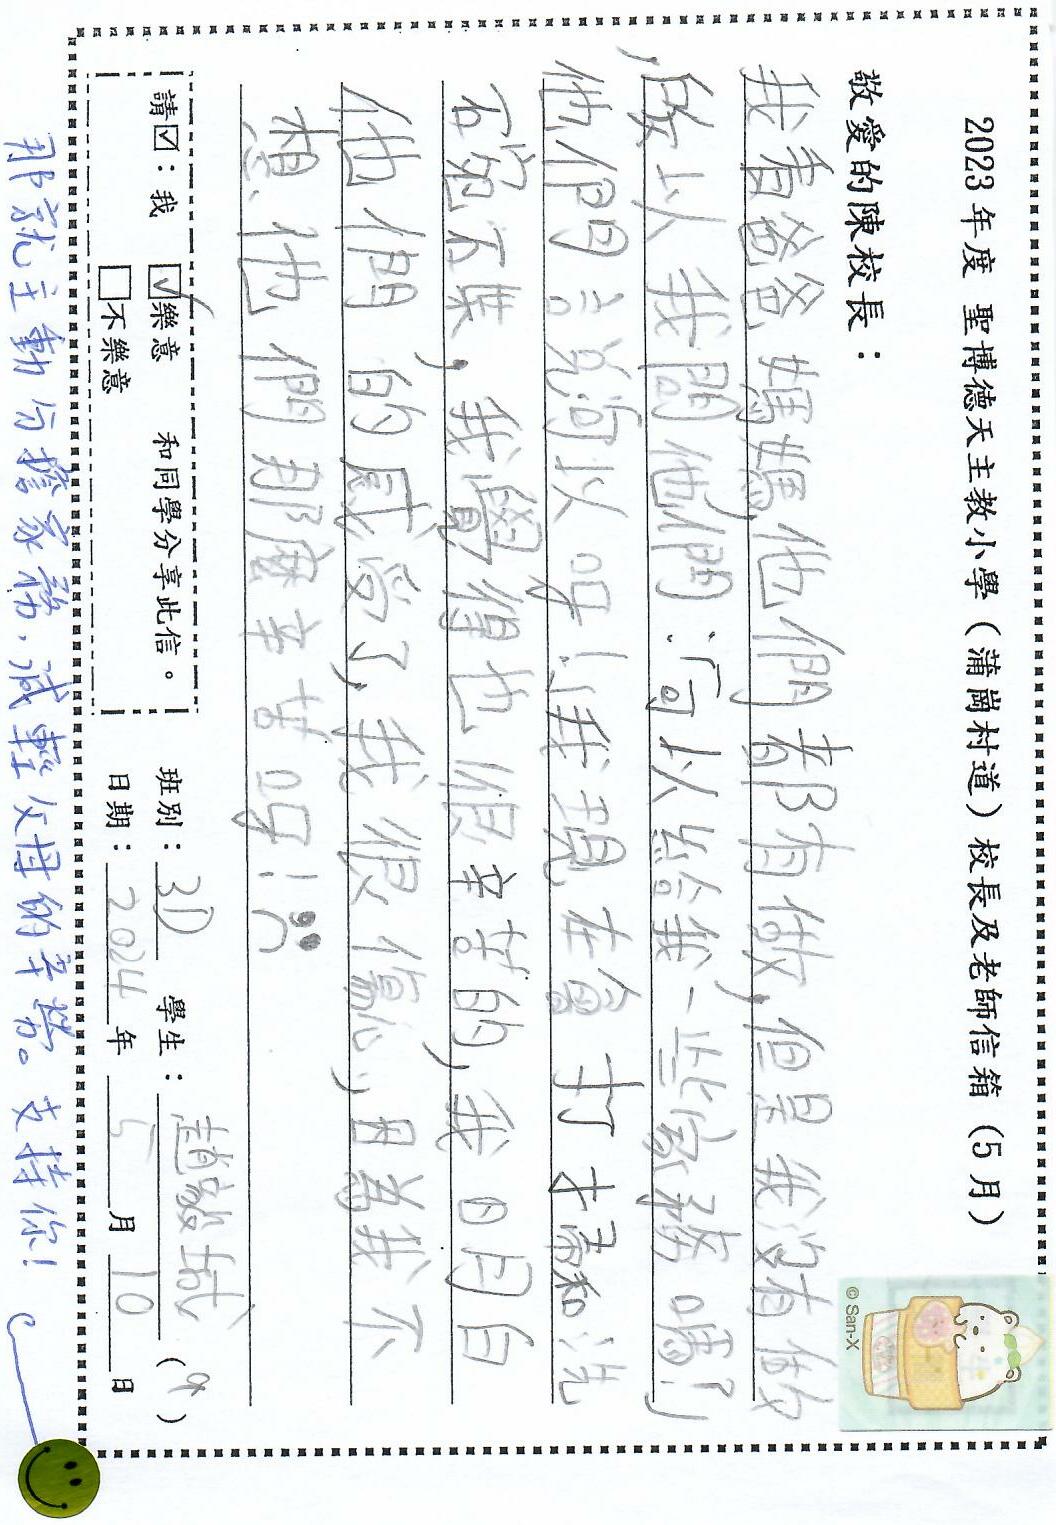 2023年度 聖博德天主教小學（蒲崗村道）校長及老師信箱（5月）
敬愛的陳校長：
我看爸爸媽媽他們都有做,但是我沒有做
,所以我問他們:「可以給我一些家務嗎?」
他們說可以呀!我現在會打掃和洗
碗不業,我覺得也很辛苦的,我明白
他們的感受了,我很傷心,因為我不
想他們那麼辛苦呀!
請☑：我 ☑樂意 和同學分享此信。
□不樂意
班別：3D 學生：趙 城 (9)
日期：2024年5月10日
那就主動分擔家務,減輕父母的辛勞。支持你!
© San-X